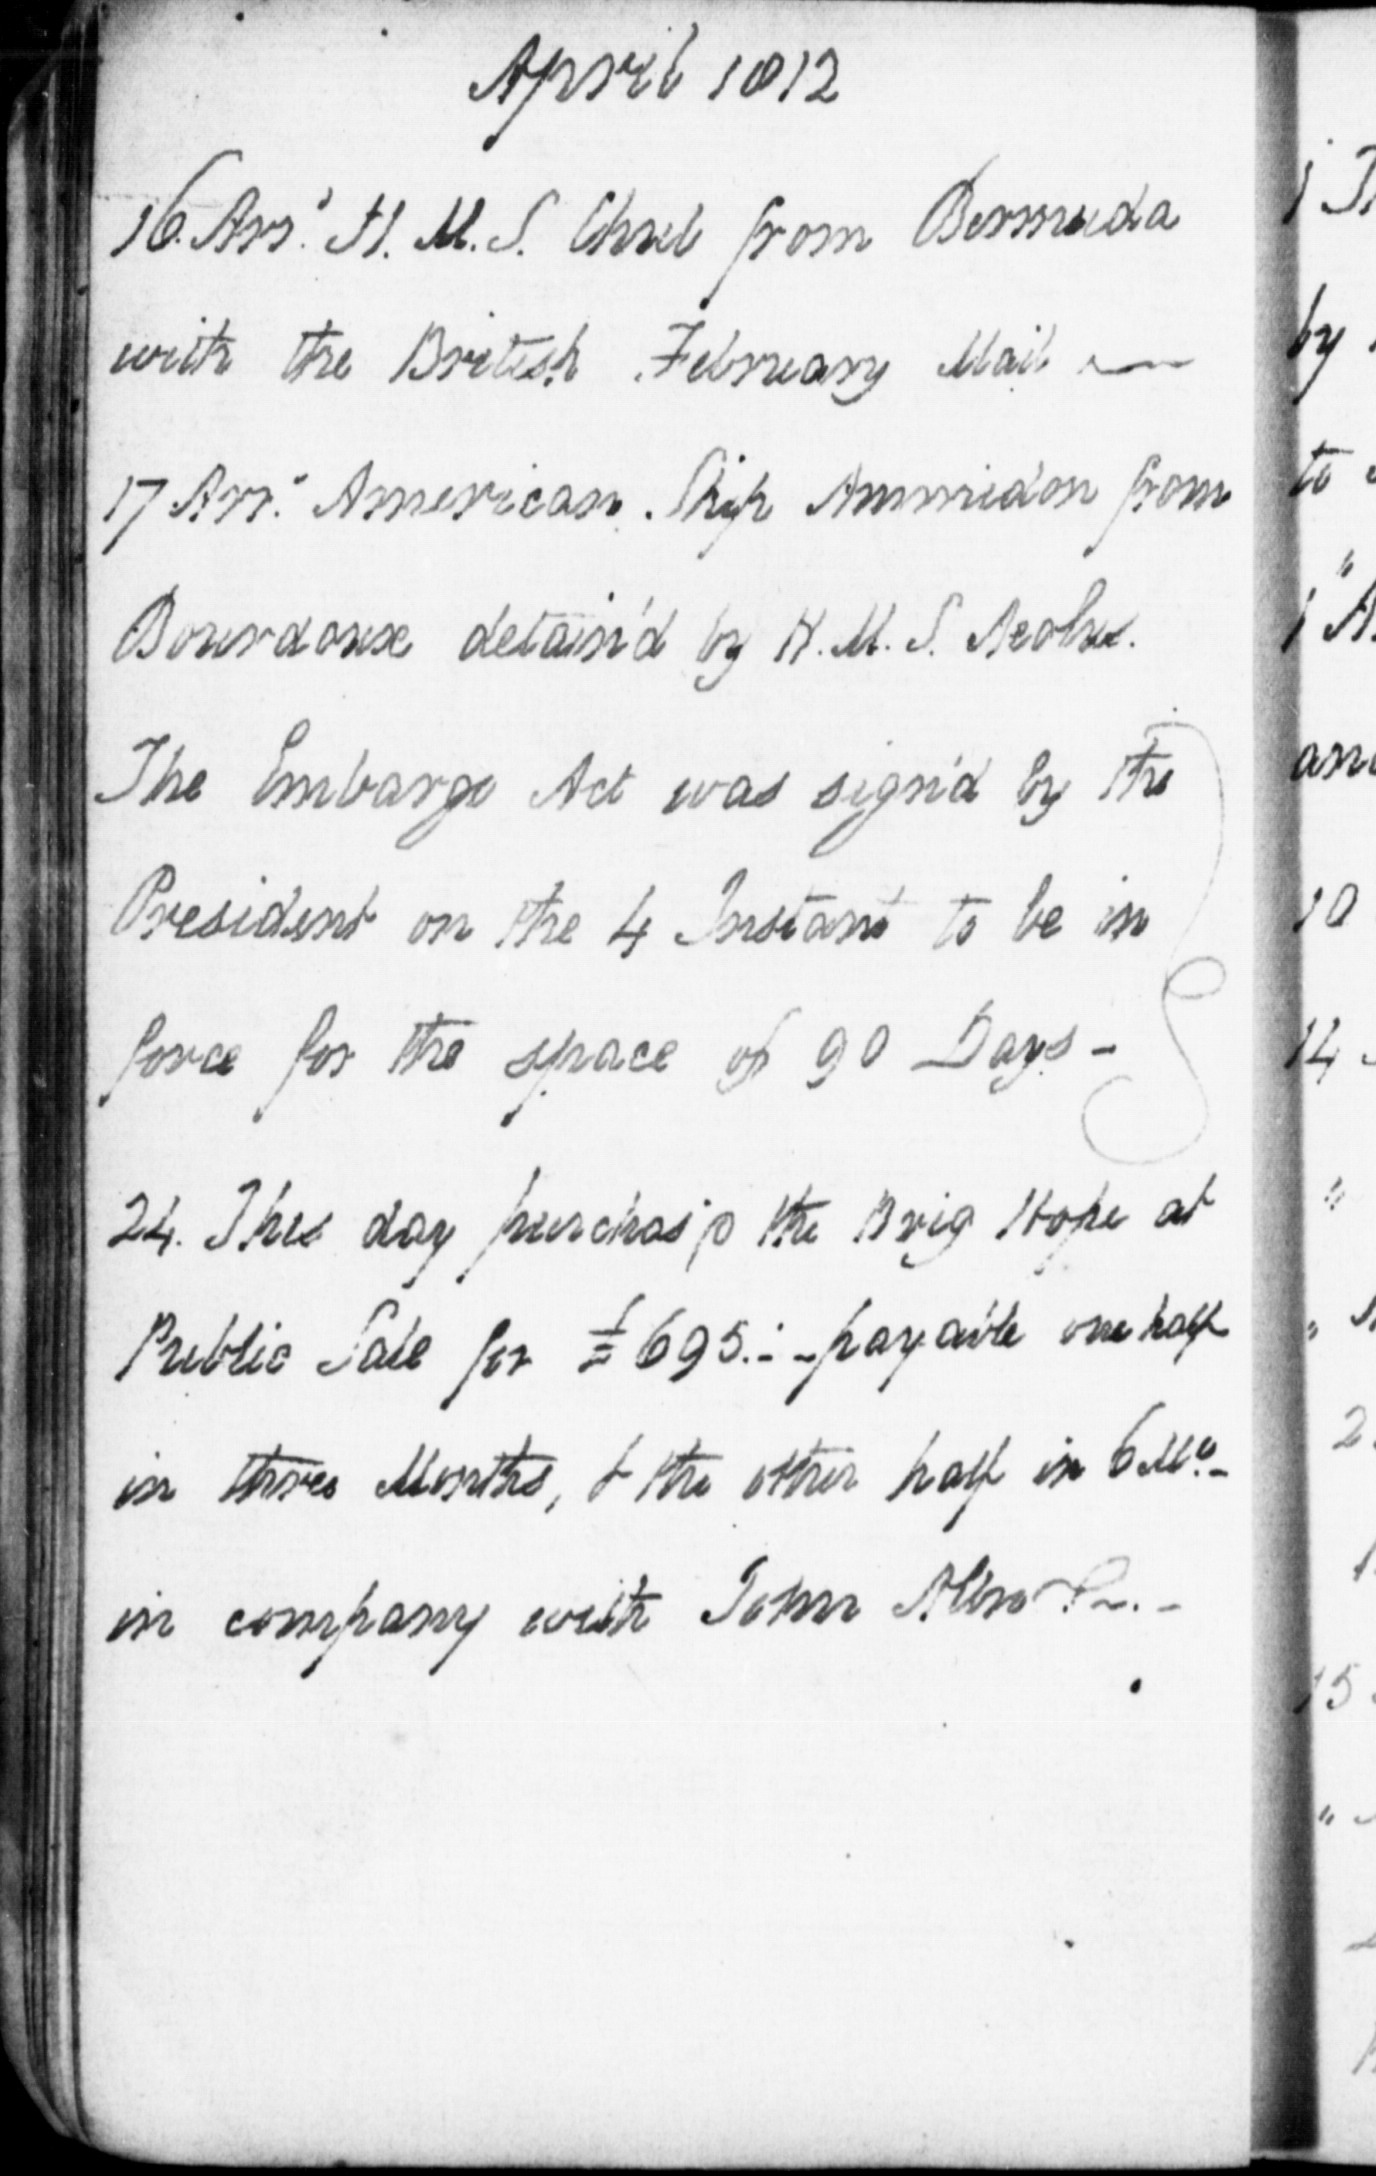 April 1812
16. Arr.d H. M. S. Chub from Bermuda
with the British February Mail
17 Arr.d American Ship Ammidon from
Bourdoux detain'd by H. M. S. Aeolus.
The Embargo Act was sign'd by the
President on the 4 Instant to be in
force for the space of 90 Days -
24. This day purchas'd the Brig Hope at
Public Sale for £695.-.- payable one half
in three Months, & the other half in 6 Mo.-
in company with John
by
to
10
14
15